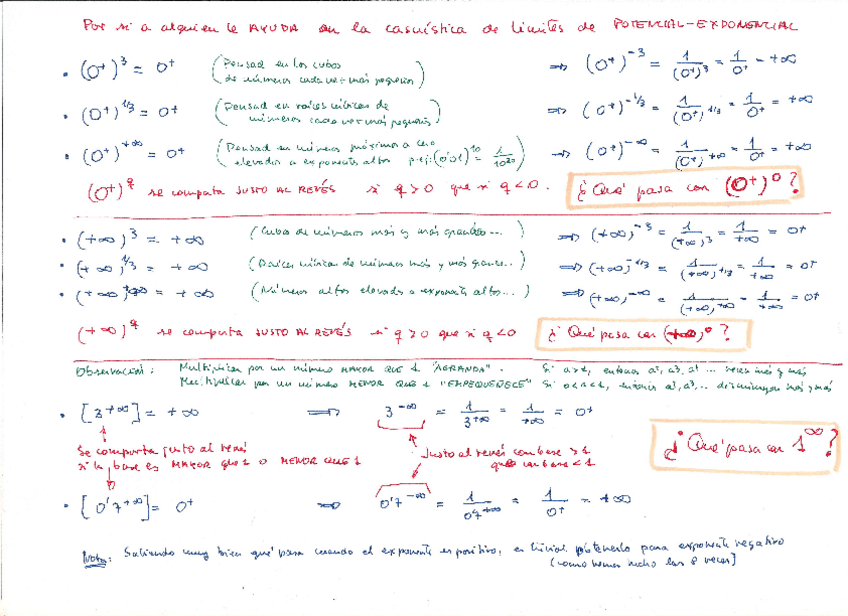 Por si a alguien le AYUDA en la casuística de límites de POTENCIAL-EXPONENCIAL
• (0⁺)³ = 0⁺ (Pensad en los cubos de números cada vez más pequeños) ⇒ (0⁺)⁻³ = 1/(0⁺)³ = 1/0⁺ = +∞
• (0⁺)^1/3 = 0⁺ (Pensad en raíces cúbicas de números cada vez más pequeños) ⇒ (0⁺)^-1/3 = 1/(0⁺)^1/3 = 1/0⁺ = +∞
• (0⁺)^+∞ = 0⁺ (Pensad en números próximos a cero elevados a exponentes altos p.ej: (0'01)^10 = 1/10^20) ⇒ (0⁺)^-∞ = 1/(0⁺)^+∞ = 1/0⁺ = +∞
(0⁺)^q se comporta JUSTO AL REVÉS si q>0 que si q<0. ¿Qué pasa con (0⁺)⁰?
• (+∞)³ = +∞ (Cubos de números más y más grandes...) ⇒ (+∞)⁻³ = 1/(+∞)³ = 1/+∞ = 0⁺
• (+∞)^1/3 = +∞ (Raíces cúbicas de números más y más grandes..) ⇒ (+∞)^-1/3 = 1/(+∞)^1/3 = 1/+∞ = 0⁺
• (+∞)^+∞ = +∞ (Números altos elevados a exponentes altos...) ⇒ (+∞)^-∞ = 1/(+∞)^+∞ = 1/+∞ = 0⁺
(+∞)^q se comporta JUSTO AL REVÉS si q>0 que si q<0 ¿Qué pasa con (+∞)⁰?
Observación: Multiplicar por un número MAYOR que 1 "AGRANDA". Si a>1, entonces a¹, a², a³ ... crecen más y más
Multiplicar por un número MENOR que 1 "EMPEQUEÑECE" Si 0<a<1, entonces a¹, a²,... disminuyen más y más
• [3^+∞] = +∞ ⇒ 3^-∞ = 1/3^+∞ = 1/+∞ = 0⁺
¿Qué pasa con 1^∞?
Se comporta justo al revés
si la base es MAYOR que 1 o MENOR QUE 1
Justo al revés con base >1
que con base <1
• [0'7^+∞] = 0⁺ ⇒ 0'7^-∞ = 1/0'7^+∞ = 1/0⁺ = +∞
Nota: Sabiendo muy bien qué pasa cuando el exponente es positivo, es trivial obtenerlo para exponente negativo
(como hemos hecho las 8 veces)